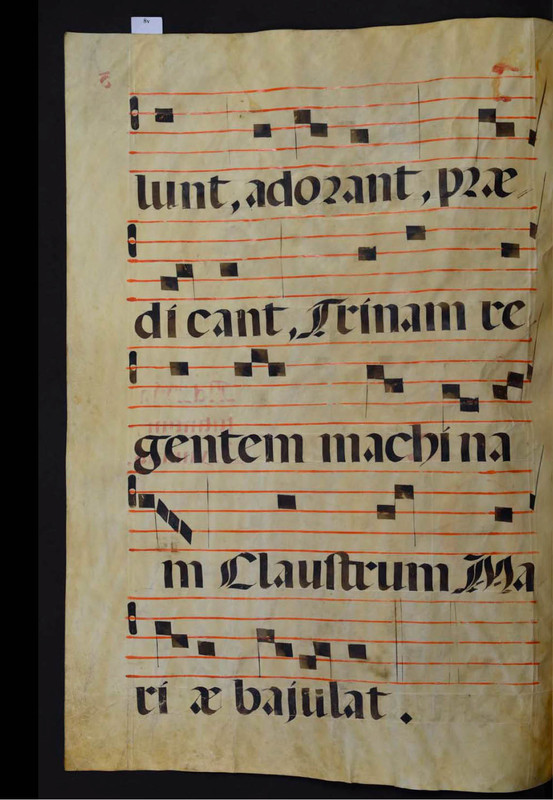 8v
lunt, adorant, præ
di cant, Trinam re
gentem machi na
m Claustrum Ma
ri æ bajulat.